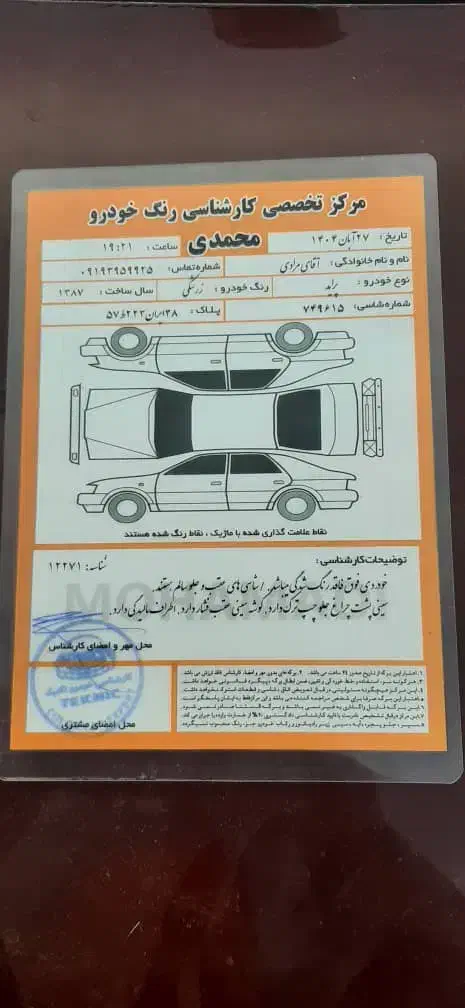 مرکز تخصصی کارشناسی رنگ خودرو
محمدی
تاریخ: ۲۷ آبان ۱۴۰۴
ساعت: ۱۹:۲۱
نام و نام خانوادگی: آقای مرادی
شماره تماس: ۰۹۱۹۳۹۵۹۹۲۵
نوع خودرو: پراید
رنگ خودرو: زرشکی
سال ساخت: ۱۳۸۷
شماره شاسی: ۷۴۹۶۱۵
پلاک: ۳۸ ایران ۲۲۳ ط ۵۷
نقاط علامت گذاری شده با ماژیک، نقاط رنگ شده هستند
توضیحات کارشناسی:
شناسه: ۱۲۲۷۱
خودروی فوق فاقد رنگ شدگی میباشد. / شاسی های عقب و جلو سالم هستند.
سینی پشت چراغ جلو چپ ترک دارد. گوشه سینی عقب فشار دارد. اطراف مالیدگی دارد.
محل مهر و امضای کارشناس
TEKNIC
محل امضای مشتری